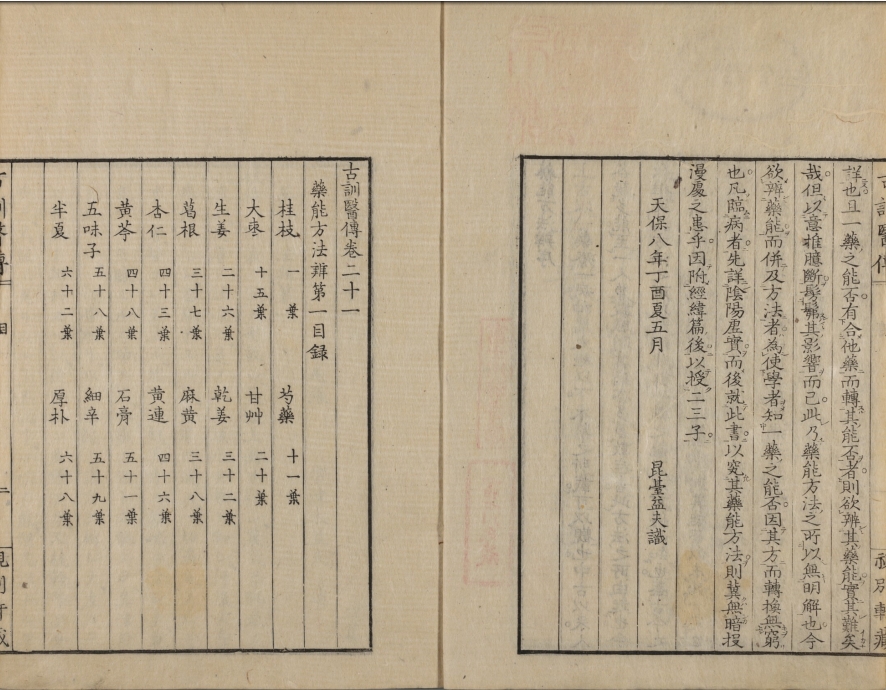 古訓醫傳
詳也且一藥之能否有合他藥而轉其能否者則欲辨其藥能實其難矣
哉但以意推臆斷髣髴其影響而已此乃藥能方法之所以無明解也今
欲辨藥能而併及方法者為使學者知一藥之能否因其方而轉換無窮
也凡臨病者先詳陰陽虛實而後就此書以究其藥能方法則冀無暗投
漫處之患乎因附經緯篇後以授二三子
天保八年丁酉夏五月 昆臺益夫識
古訓醫傳卷二十一
藥能方法辨第一目録
桂枝 一葉 芍藥 十一葉
大棗 十五葉 甘艸 二十葉
生姜 二十六葉 乾姜 三十二葉
葛根 三十七葉 麻黄 三十八葉
杏仁 四十三葉 黄連 四十六葉
黄芩 四十八葉 石膏 五十一葉
五味子 五十八葉 細辛 五十九葉
半夏 六十二葉 厚朴 六十八葉
古訓醫傳